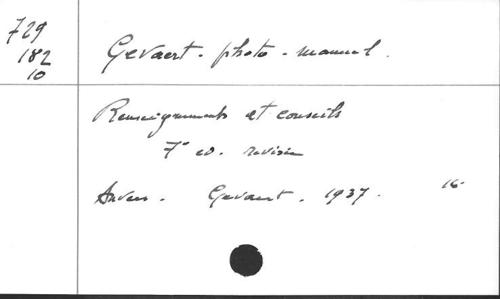 729
182
10
Gevaert - photo - manuel.
Renseignements et conseils
7e ed. revisée
Anvers. Gevaert. 1937. 16°